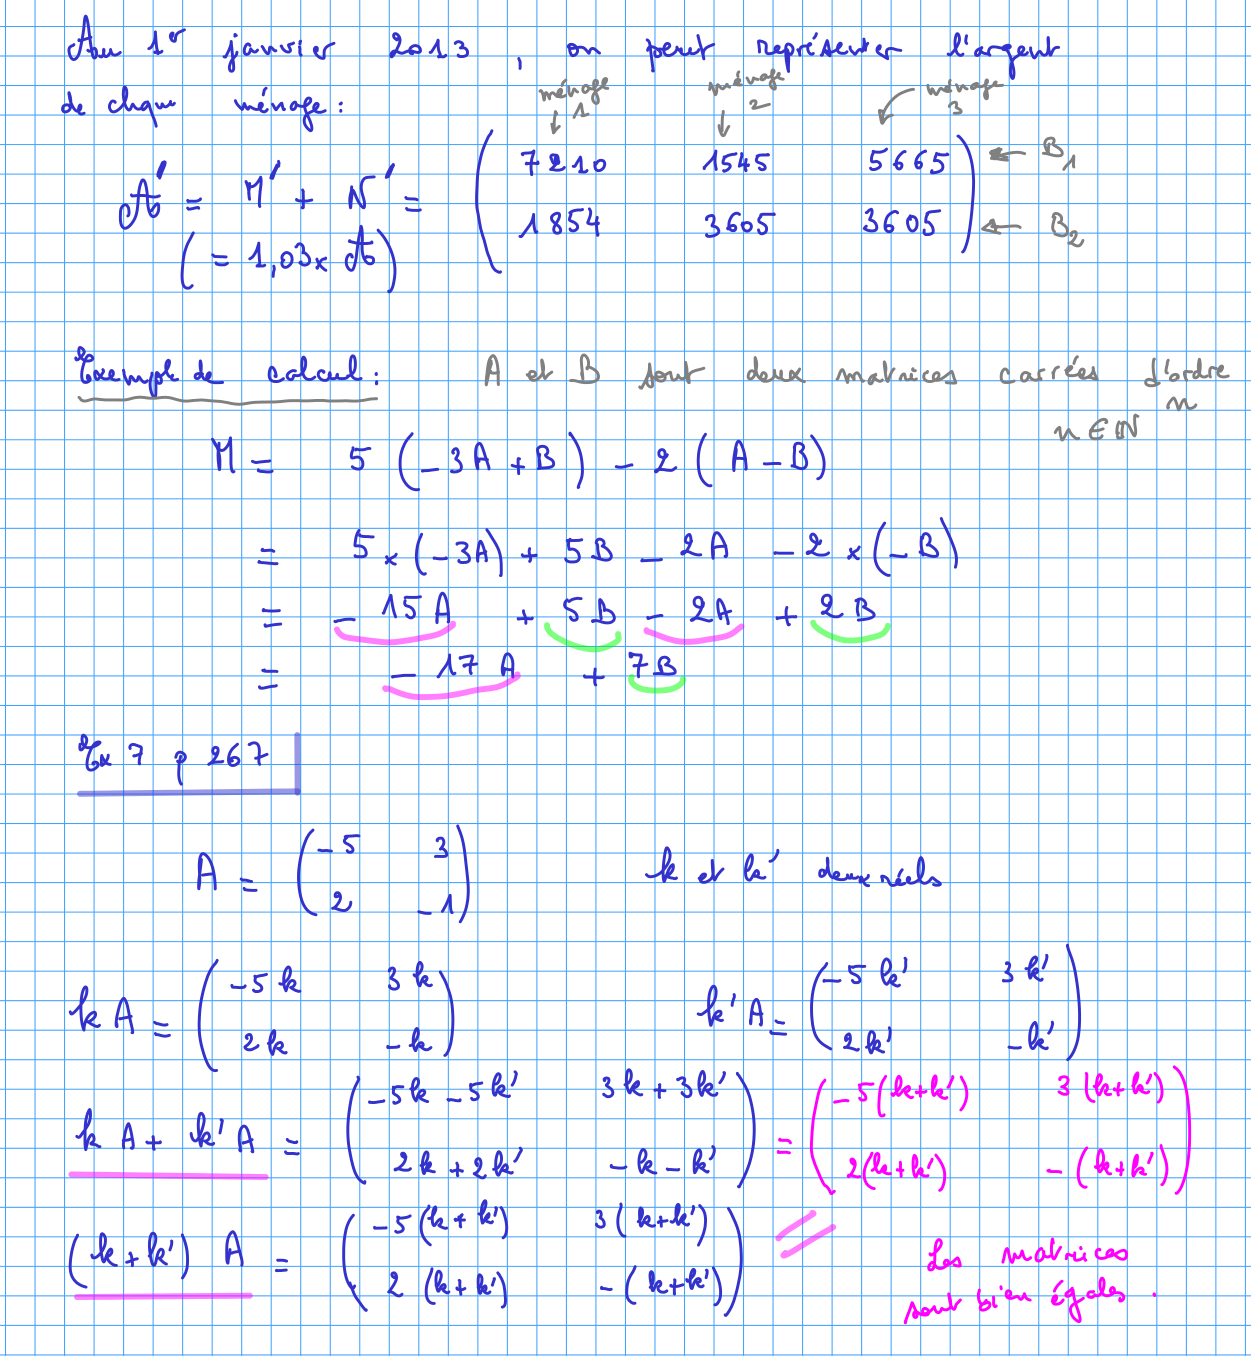 Au 1er janvier 2013, on peut représenter l'argent
de chaque ménage :
ménage 1 ménage 2 ménage 3
A' = M' + N' = ( 7210 1545 5665 ) ← B1
( 1854 3605 3605 ) ← B2
( = 1,03 × A )
Exemple de calcul : A et B sont deux matrices carrées d'ordre n
n ∈ ℕ
M = 5 ( -3A + B ) - 2 ( A - B )
= 5 × (-3A) + 5B - 2A - 2 × (-B)
= - 15A + 5B - 2A + 2B
= - 17A + 7B
Ex 7 p 267
A = ( -5 3 ; 2 -1 ) k et k' deux réels
kA = ( -5k 3k ; 2k -k ) k'A = ( -5k' 3k' ; 2k' -k' )
kA + k'A = ( -5k - 5k' 3k + 3k' ; 2k + 2k' -k - k' ) = ( -5(k+k') 3(k+k') ; 2(k+k') -(k+k') )
(k+k') A = ( -5(k+k') 3(k+k') ; 2(k+k') -(k+k') )
Les matrices
sont bien égales.